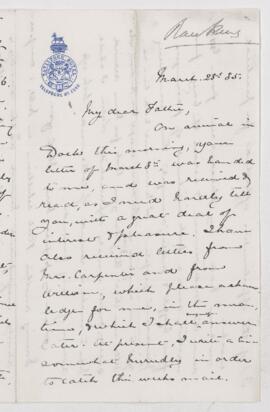 March 28th 85.
My dear Father,
On arrival in
Docks this morning, your
letter of March 8th was handed
to me, and was received &
read, as I need hardly tell
you, with a great deal of
interest & pleasure. I have
also received letters from
Mrs. Carpenter and from
William, which please acknow-
ledge for me, in the mean-
time, & which I shall answer
later. At present, I write a bit
somewhat hurriedly in order
to catch this week's mail.